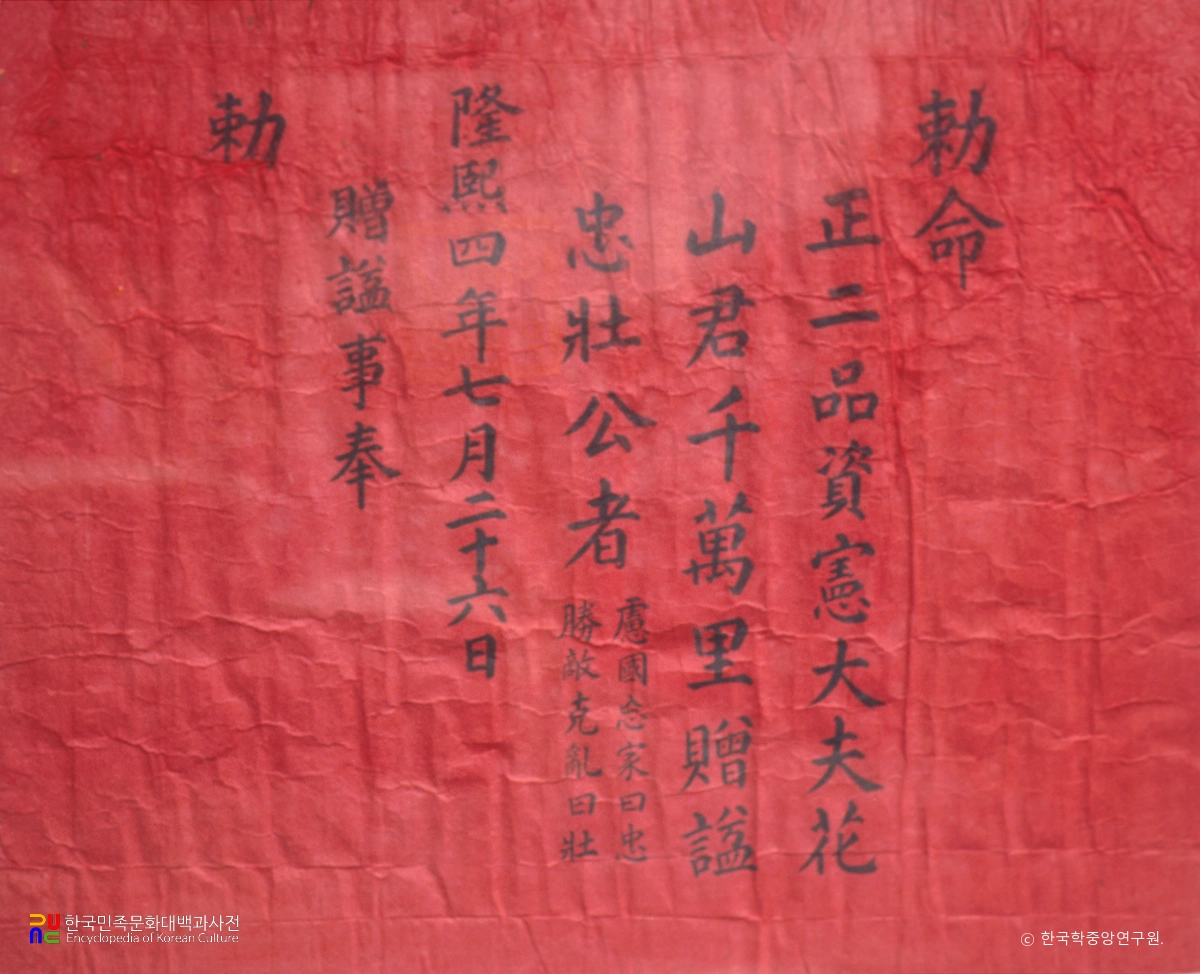 勅命
正二品資憲大夫花
山君千萬里贈諡
忠壯公者
慮國忘家曰忠
勝敵克亂曰壯
隆熙四年七月二十六日
贈諡事奉
勅
한국민족문화대백과사전
Encyclopedia of Korean Culture
ⓒ 한국학중앙연구원.